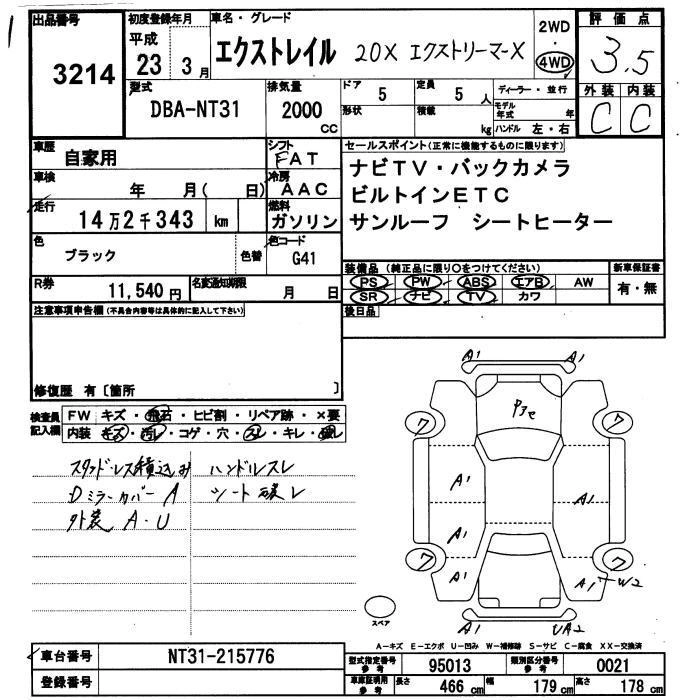 出品番号 3214
初度登録年月 平成 23 3月
車名・グレード エクストレイル 20X エクストリーマーX
2WD 4WD
評価点 3.5
外装 内装
C C
型式 DBA-NT31
排気量 2000 cc
ドア 5
形状
定員 5 人
積載 kg
ディーラー・並行
モデル年式 年
ハンドル 左・右
車歴 自家用
シフト FAT
車検 年 月( 日)
冷房 AAC
走行 14万2千343 km
燃料 ガソリン
色 ブラック 色替
色コード G41
R券 11,540円
名変通知期限 月 日
セールスポイント(正常に機能するものに限ります)
ナビTV・バックカメラ
ビルトインETC
サンルーフ シートヒーター
装備品(純正品に限り○をつけてください)
PS PW ABS エアB AW
SR ナビ TV カワ
新車保証書 有・無
後日品
注意事項申告欄(不具合内容等は具体的に記入して下さい)
修復歴 有〔箇所 〕
検査員記入欄
FW キズ・飛石・ヒビ割・リペア跡・×要
内装 キズ・汚レ・コゲ・穴・スレ・キレ・破レ
スタッドレス積込み ハンドルスレ
Dミラーカバー A シート破レ
外装 A・U
A1 A1
ワ ワ
A1 A1
A1
ワ ワ
A1 A1 W2
A1 UA2
スペア
A-キズ E-エクボ U-凹み W-補修跡 S-サビ C-腐食 XX-交換済
車台番号 NT31-215776
登録番号
型式指定番号 参考 95013
類別区分番号 参考 0021
車庫証明用 参考 長さ 466 cm 幅 179 cm 高さ 178 cm